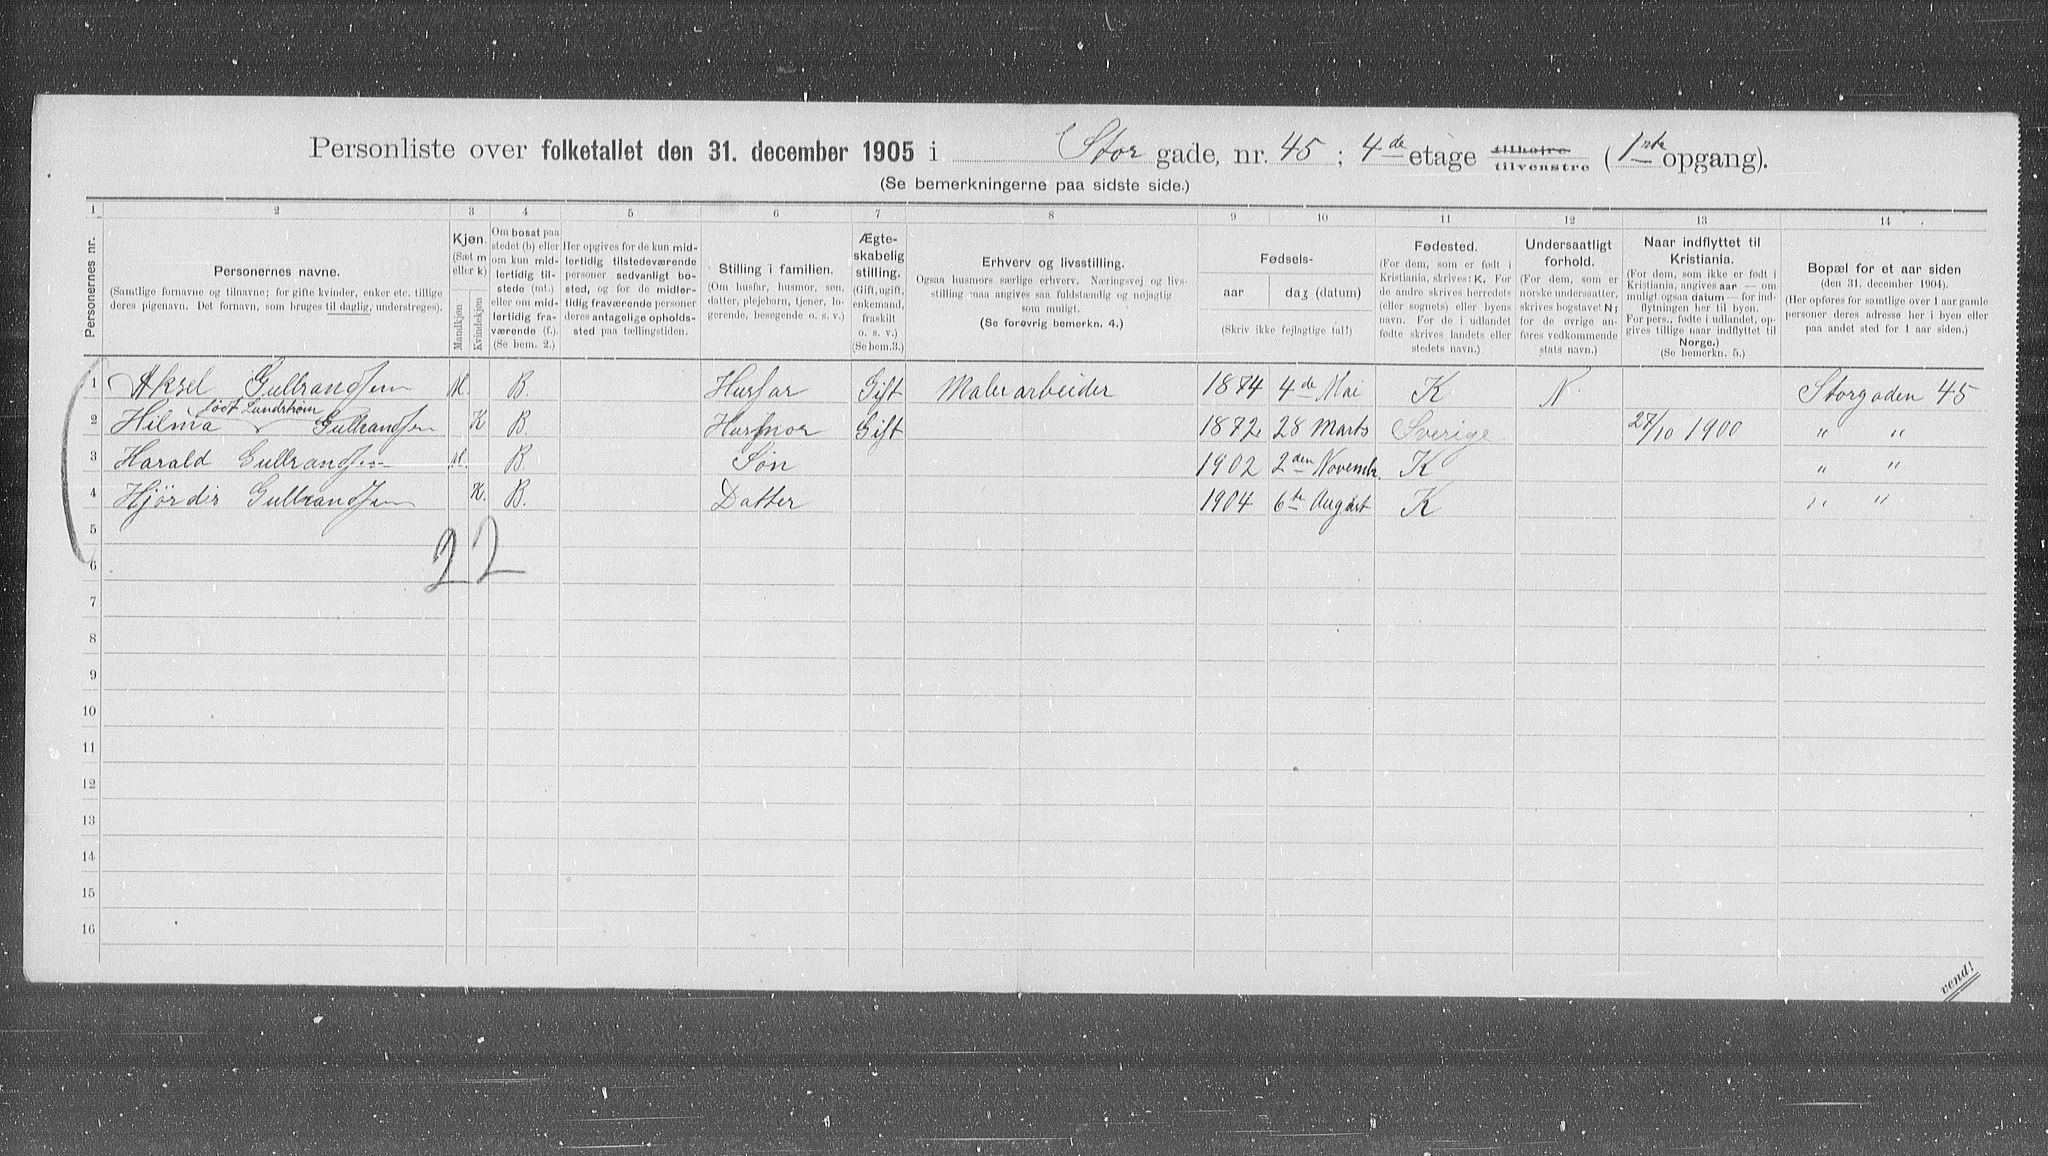 Personliste over folketallet den 31. december 1905 i Stor gade, nr. 45 ; 4de etage tilhøjre tilvenstre (1ste opgang).
(Se bemerkningerne paa sidste side.)
1 2 3 4 5 6 7 8 9 10 11 12 13 14
Personernes nr.
Personernes navne.
(Samtlige fornavne og tilnavne; for gifte kvinder, enker etc. tillige
deres pigenavn. Det fornavn, som bruges til daglig, understreges).
Kjøn.
(Sæt m
eller k)
Mandkjøn
Kvindekjøn
Om bosat paa
stedet (b) eller
om kun mid-
lertidig til-
stede (mt.)
eller om mid-
lertidig fra-
værende (f.).
(Se bem. 2.)
Her opgives for de kun mid-
lertidig tilstedeværende
personer sedvanligt bo-
sted, og for de midler-
tidig fraværende personer
deres antagelige opholds-
sted paa tællingstiden.
Stilling i familien.
(Om husfar, husmor, søn,
datter, plejebarn, tjener, lo-
gerende, besøgende o. s. v.)
Ægte-
skabelig
stilling.
(Gift, ugift,
enkemand,
fraskilt
o. s. v.)
(Se bem.3.)
Erhverv og livsstilling.
Ogsaa husmors særlige erhverv. Næringsvej og livs-
stilling maa angives saa fuldstændig og nøjagtig
som muligt.
(Se forøvrig bemerkn. 4.)
Fødsels-
aar
dag (datum)
(Skriv ikke fejlagtige tal!)
Fødested.
(For dem, som er født i
Kristiania, skrives: K. For
de andre skrives herredets
(eller sognets) eller byens
navn. For de i udlandet
fødte skrives landets eller
stedets navn.)
Undersaatligt
forhold.
(For dem, som er
norske undersaatter,
skrives bogstavet N;
for de øvrige an-
føres vedkommende
stats navn.)
Naar indflyttet til
Kristiania.
(For dem, som ikke er født i
Kristiania, angives aar — om
muligt ogsaa datum — for ind-
flytningen her til byen.
For pers., fødte i udlandet, op-
gives tillige naar indflyttet til
Norge.)
(Se bemerkn. 5.)
Bopæl for et aar siden
(den 31. december 1904).
(Her opføres for samtlige over 1 aar gamle
personer deres adresse her i byen eller
paa andet sted for 1 aar siden.)
1 Aksel Gulbrandsen M. B. Husfar Gift Malerarbeider 1874 4de Mai K N. Storgaden 45
født Lundstrøm
2 Hilma Gulbrandsen K B Husmor Gift 1872 28 Marts Sverige 27/10 1900 " "
3 Harald Gulbrandsen M. B. Søn 1902 2den Novemb. K " "
4 Hjørdis Gulbrandsen K. B. Datter 1904 6te August K " "
5
2 2
6
7
8
9
10
11
12
13
14
15
16
vend!